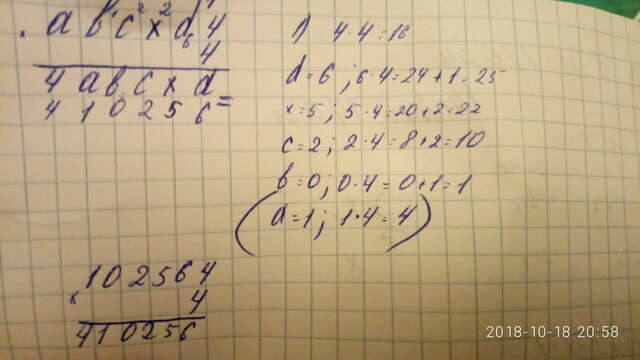 a b c x d 4
4
4 a b c x d =
4 1 0 2 5 6
1) 4·4=16
d=6; 6·4=24+1=25
x=5; 5·4=20+2=22
c=2; 2·4=8+2=10
b=0; 0·4=0+1=1
(a=1; 1·4=4)
102564
× 4
410256
2018-10-18 20:58